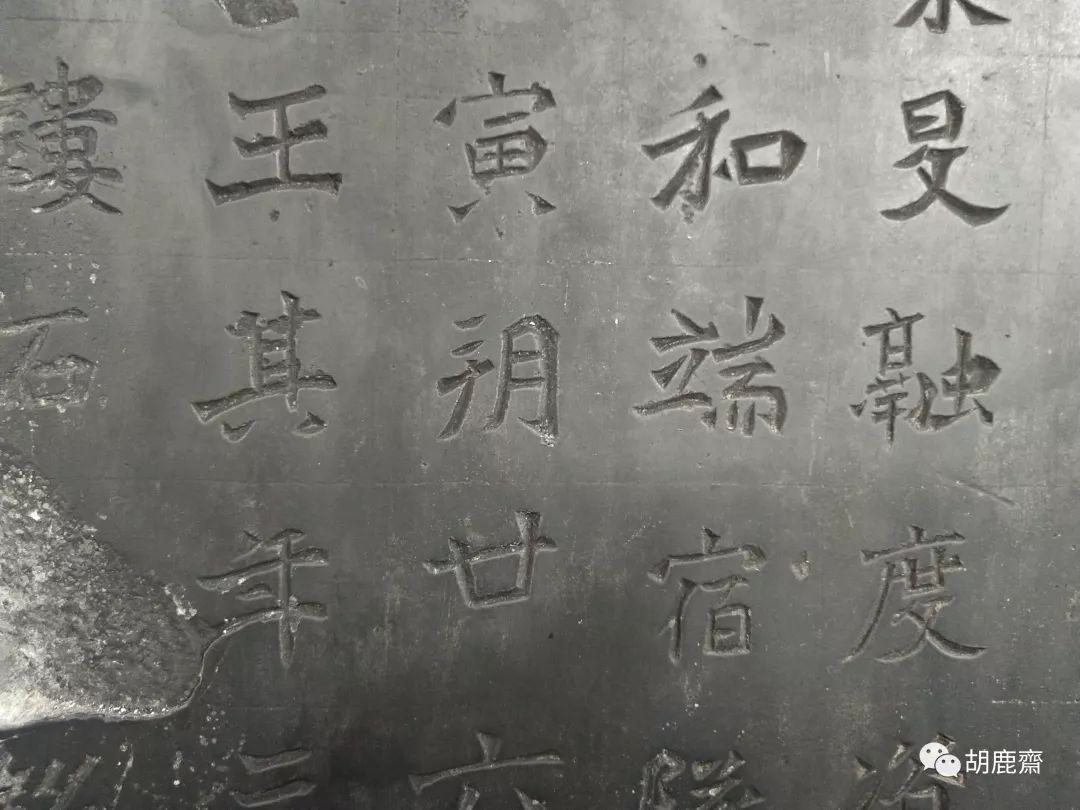 旻融度
和端宿
寅朔廿六
王其年三
鏤石
胡鹿齋